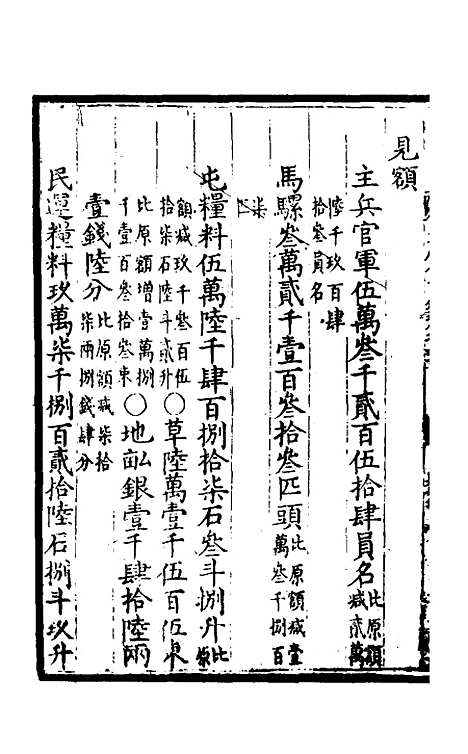 見額
主兵官軍伍萬叁千貳百伍拾肆員名比原額減貳萬
陸千玖百肆拾叁員名
馬騾叁萬貳千壹百叁拾叁匹頭比原額減壹萬叁千捌百
柒匹
屯糧料伍萬陸千肆百捌拾柒石叁斗捌升比原
額減玖千叁百伍拾柒石陸斗貳升○草陸萬壹千伍百伍束
比原額增壹萬捌千壹百叁拾叁束○地畝銀壹千肆拾陸兩
壹錢陸分比原額減柒拾柒兩捌錢肆分
民運糧料玖萬柒千捌百貳拾陸石捌斗玖升